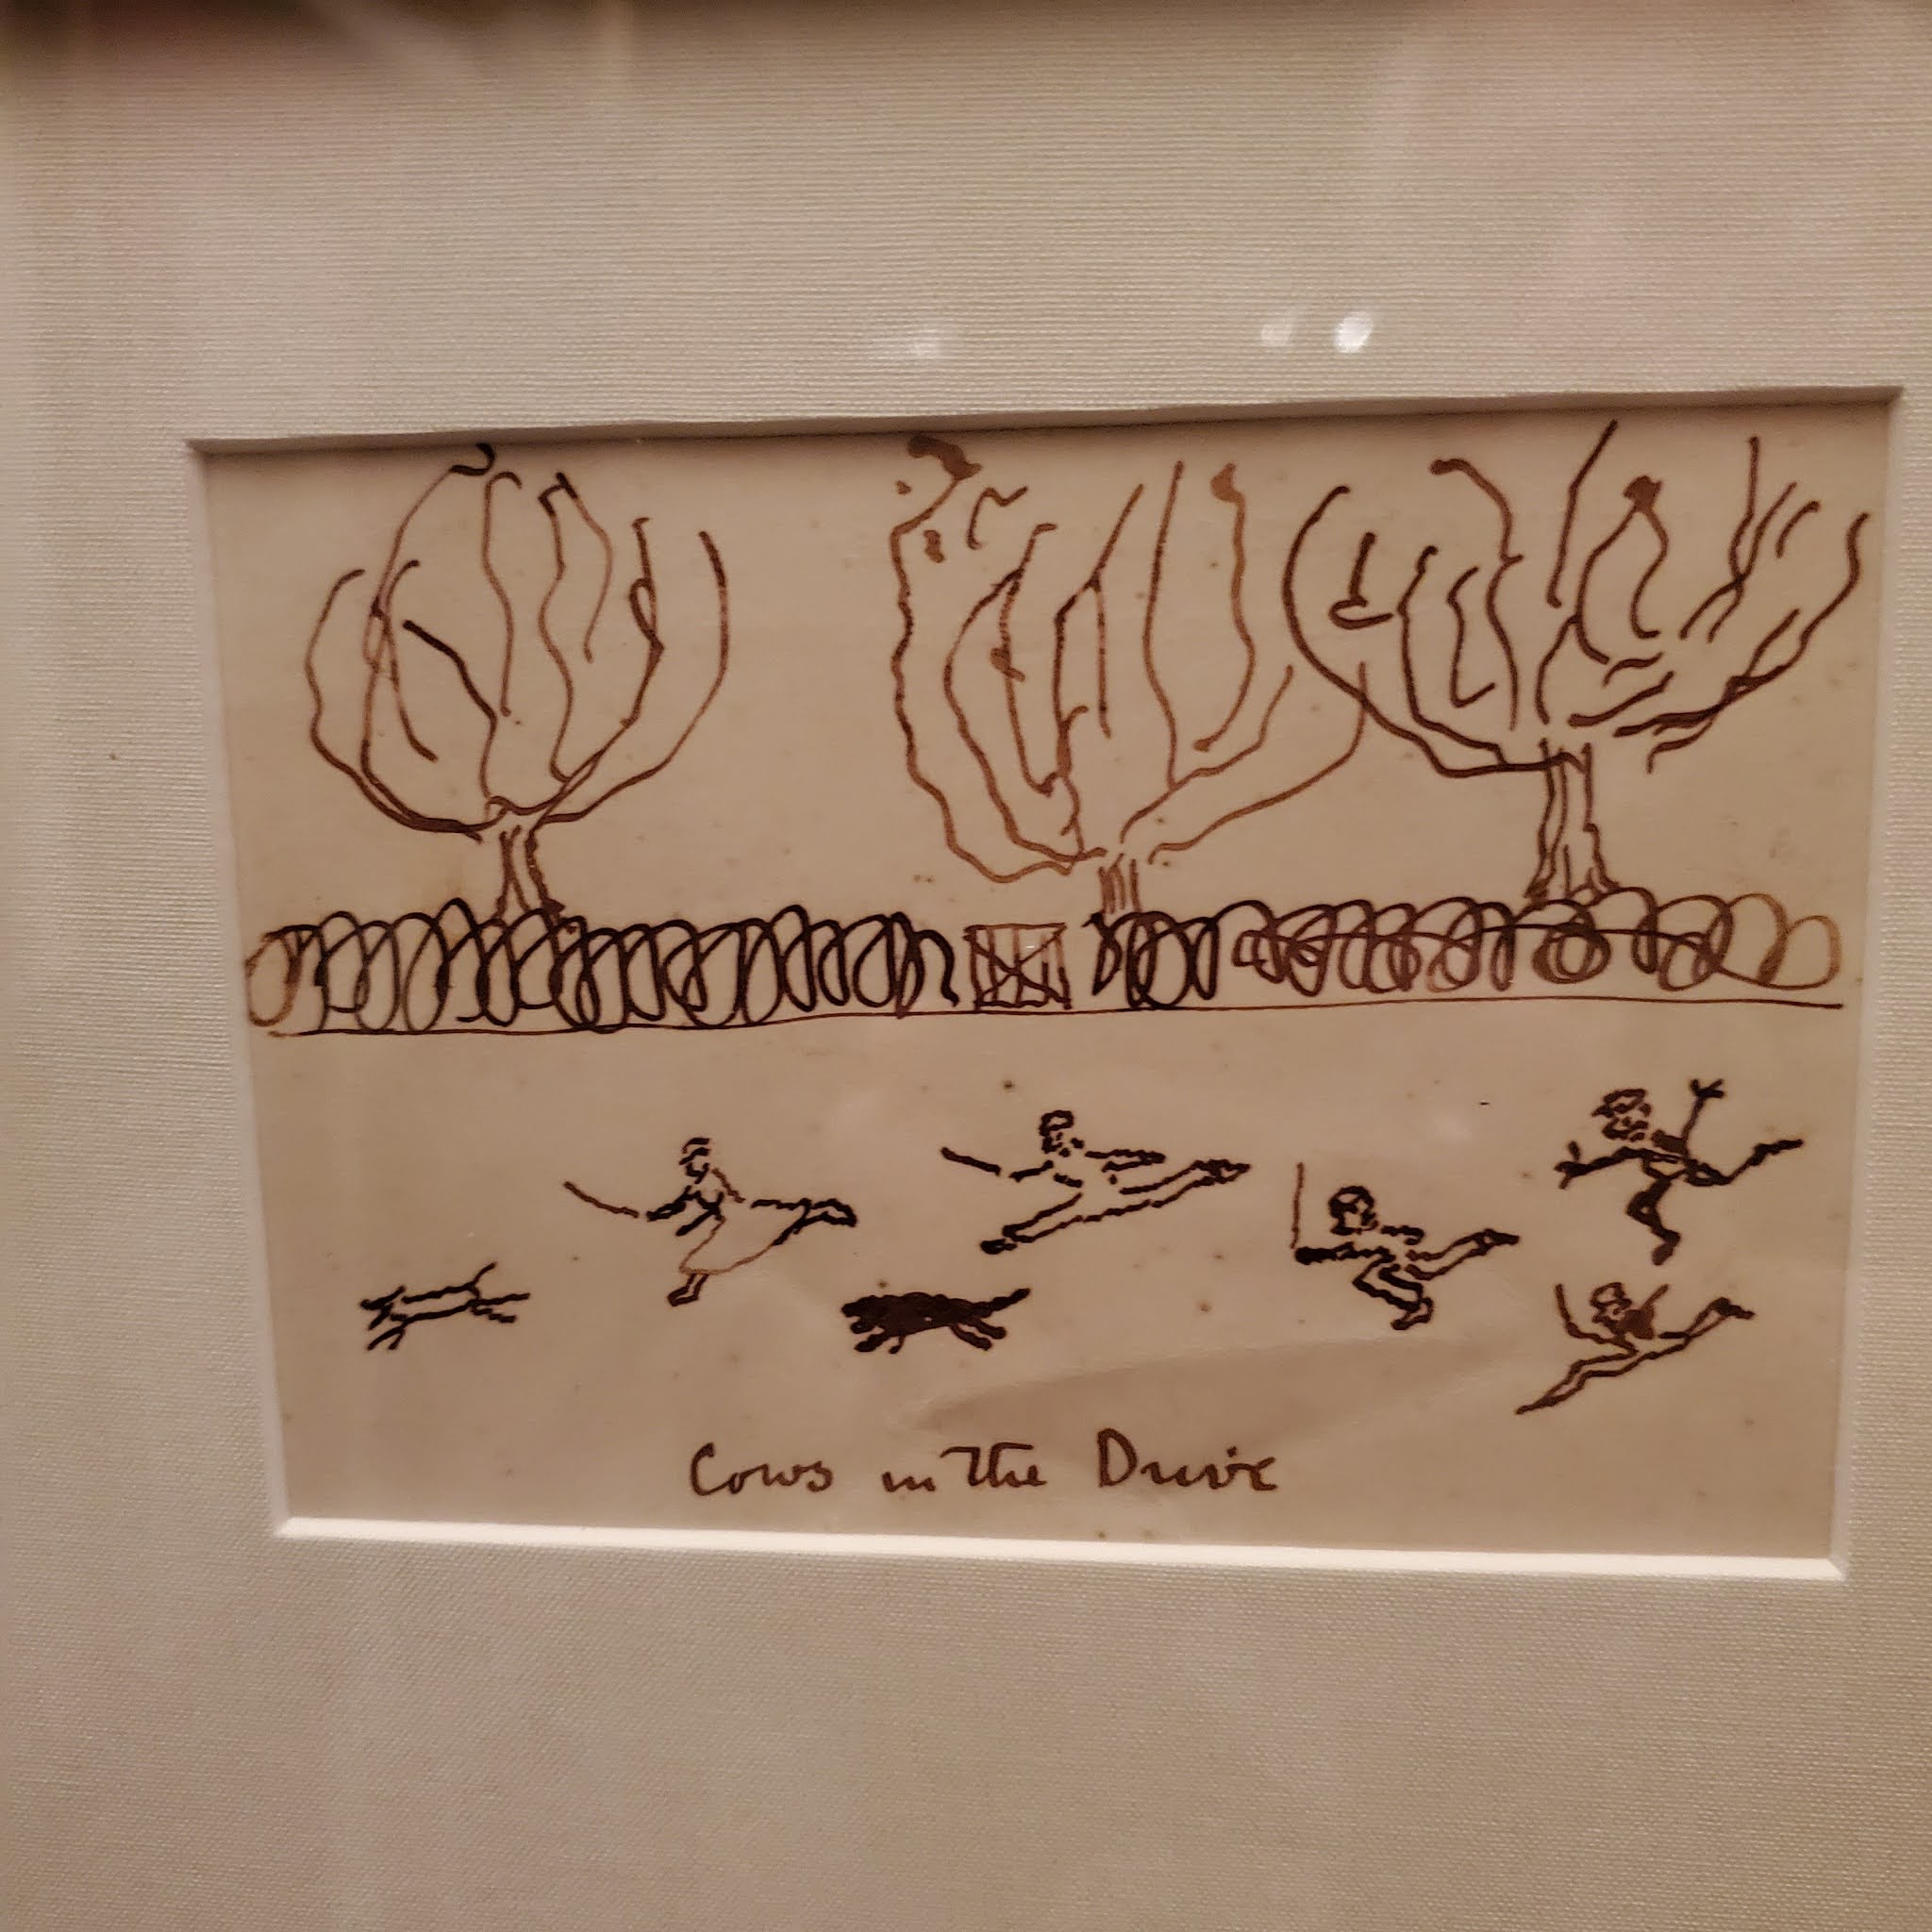 Cows in the Drive